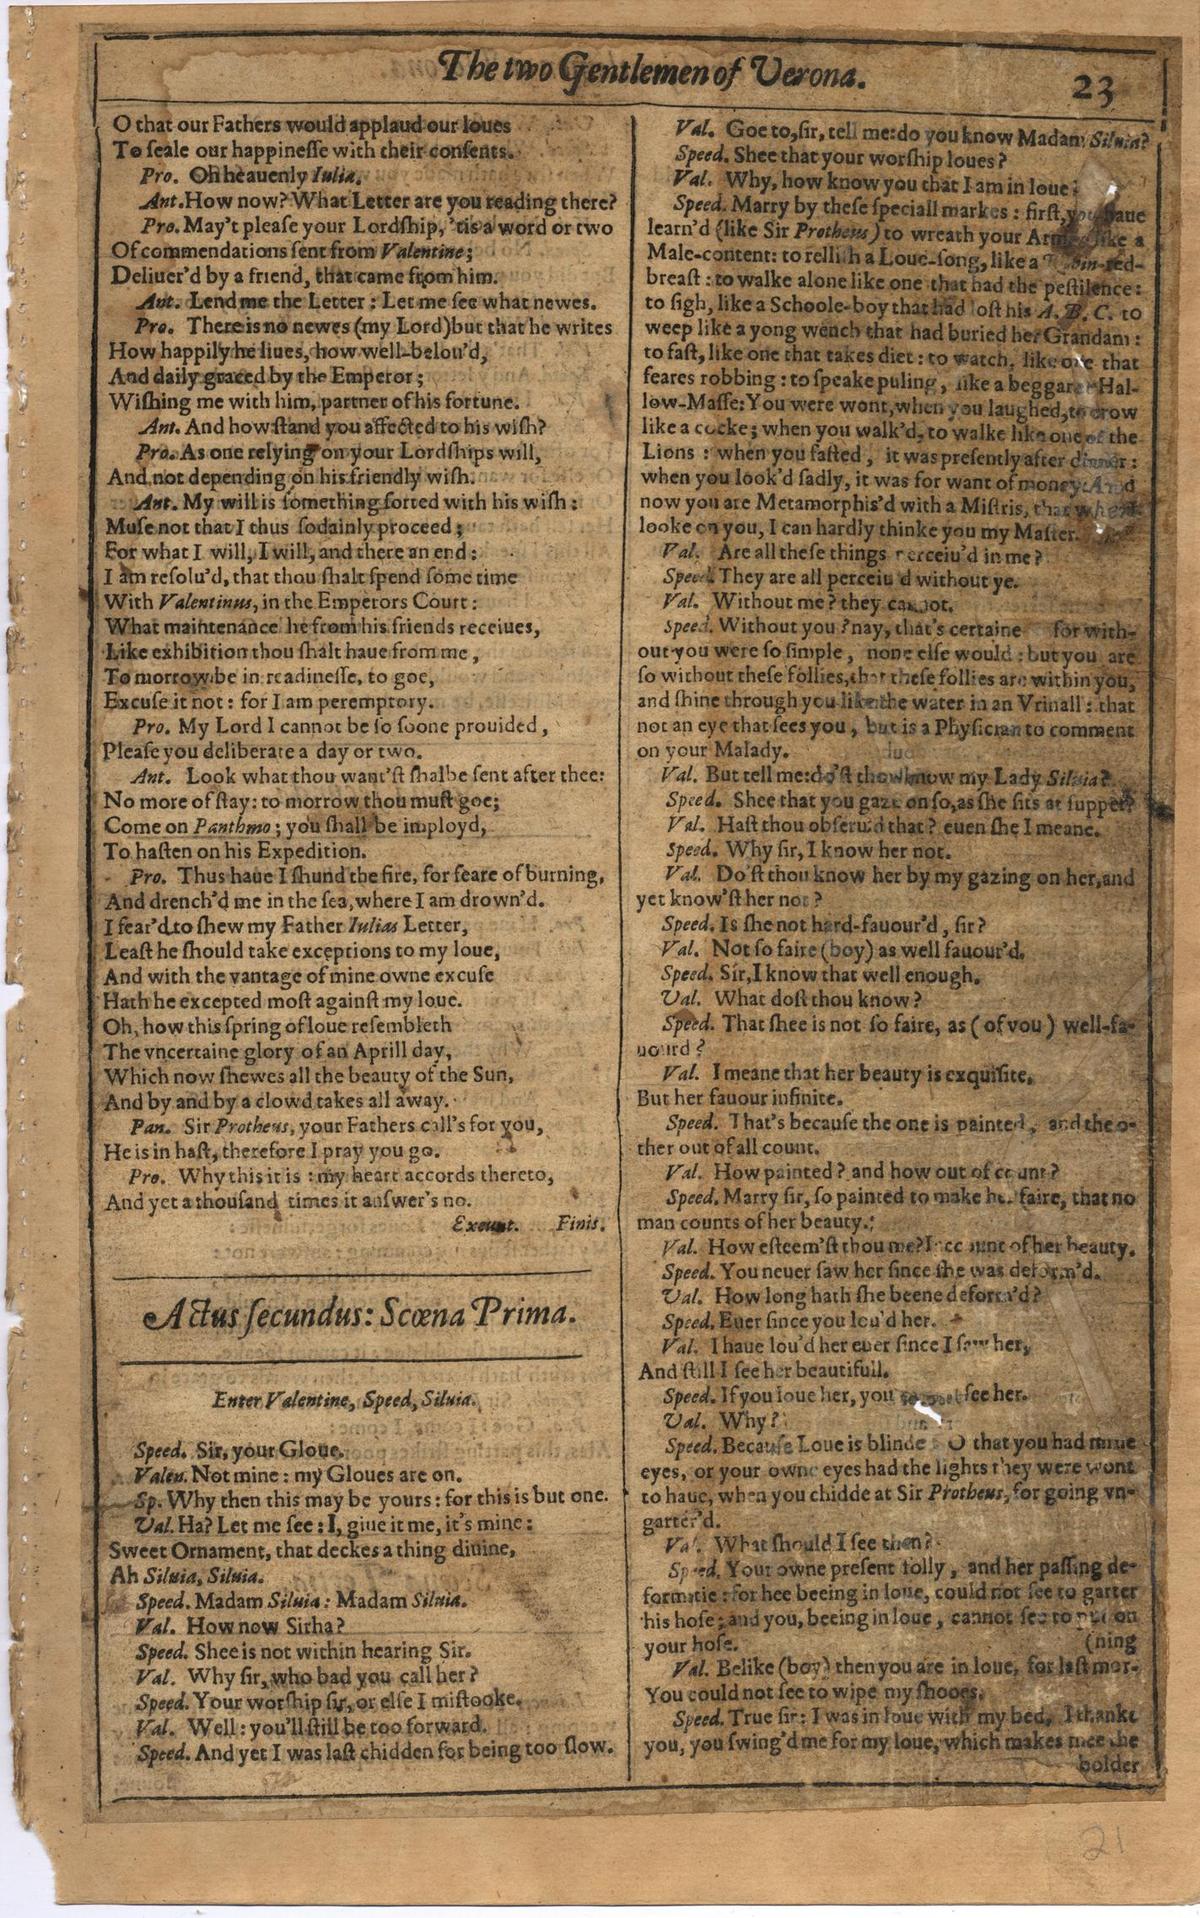 The two Gentlemen of Verona.
23
O that our Fathers would applaud our loues
To ſeale our happineſſe with their conſents.
Pro. Oh heauenly Iulia.
Ant. How now? What Letter are you reading there?
Pro. May't pleaſe your Lordſhip, 'tis a word or two
Of commendations ſent from Valentine;
Deliuer'd by a friend, that came from him.
Ant. Lend me the Letter: Let me ſee what newes.
Pro. There is no newes (my Lord) but that he writes
How happily he liues, how well-belou'd,
And daily graced by the Emperor;
Wiſhing me with him, partner of his fortune.
Ant. And how ſtand you affected to his wiſh?
Pro. As one relying on your Lordſhips will,
And not depending on his friendly wiſh.
Ant. My will is ſomething ſorted with his wiſh:
Muſe not that I thus ſodainly proceed;
For what I will, I will, and there an end:
I am reſolu'd, that thou ſhalt ſpend ſome time
With Valentinus, in the Emperors Court:
What maintenance he from his friends receiues,
Like exhibition thou ſhalt haue from me,
To morrow be in readineſſe, to goe,
Excuſe it not: for I am peremptory.
Pro. My Lord I cannot be ſo ſoone prouided,
Pleaſe you deliberate a day or two.
Ant. Look what thou want'ſt ſhalbe ſent after thee:
No more of ſtay: to morrow thou muſt goe;
Come on Panthmo; you ſhall be imployd,
To haſten on his Expedition.
Pro. Thus haue I ſhund the fire, for feare of burning,
And drench'd me in the ſea, where I am drown'd.
I fear'd to ſhew my Father Iulias Letter,
Leaſt he ſhould take exceptions to my loue,
And with the vantage of mine owne excuſe
Hath he excepted moſt againſt my loue.
Oh, how this ſpring of loue reſembleth
The vncertaine glory of an Aprill day,
Which now ſhewes all the beauty of the Sun,
And by and by a clowd takes all away.
Pan. Sir Protheus, your Fathers call's for you,
He is in haſt, therefore I pray you go.
Pro. Why this it is: my heart accords thereto,
And yet a thouſand times it anſwer's no.
Exeunt. Finis.
Actus ſecundus: Scœna Prima.
Enter Valentine, Speed, Siluia.
Speed. Sir, your Gloue.
Valen. Not mine: my Gloues are on.
Sp. Why then this may be yours: for this is but one.
Val. Ha? Let me ſee: I, giue it me, it's mine:
Sweet Ornament, that deckes a thing diuine,
Ah Siluia, Siluia.
Speed. Madam Siluia: Madam Siluia.
Val. How now Sirha?
Speed. Shee is not within hearing Sir.
Val. Why ſir, who bad you call her?
Speed. Your worſhip ſir, or elſe I miſtooke.
Val. Well: you'll ſtill be too forward.
Speed. And yet I was laſt chidden for being too ſlow.
Val. Goe to, ſir, tell me: do you know Madam Siluia?
Speed. Shee that your worſhip loues?
Val. Why, how know you that I am in loue?
Speed. Marry by theſe ſpeciall markes: firſt, you haue
learn'd (like Sir Protheus) to wreath your Armes like a
Male-content: to relliſh a Loue-ſong, like a Robin-red-
breaſt: to walke alone like one that had the peſtilence:
to ſigh, like a Schoole-boy that had loſt his A.B.C. to
weep like a yong wench that had buried her Grandam:
to faſt, like one that takes diet: to watch, like one that
feares robbing: to ſpeake puling, like a beggar at Hal-
low-Maſſe: You were wont, when you laughed, to crow
like a cocke; when you walk'd, to walke like one of the
Lions: when you faſted, it was preſently after dinner:
when you look'd ſadly, it was for want of money: And
now you are Metamorphis'd with a Miſtris, that when I
looke on you, I can hardly thinke you my Maſter.
Val. Are all theſe things perceiu'd in me?
Speed. They are all perceiu'd without ye.
Val. Without me? they cannot.
Speed. Without you? nay, that's certaine for with-
out you were ſo ſimple, none elſe would: but you are
ſo without theſe follies, that theſe follies are within you,
and ſhine through you like the water in an Vrinall: that
not an eye that ſees you, but is a Phyſician to comment
on your Malady.
Val. But tell me: do'ſt thou know my Lady Siluia?
Speed. Shee that you gaze on ſo, as ſhe ſits at ſupper?
Val. Haſt thou obſeru'd that? euen ſhe I meane.
Speed. Why ſir, I know her not.
Val. Do'ſt thou know her by my gazing on her, and
yet know'ſt her not?
Speed. Is ſhe not hard-fauour'd, ſir?
Val. Not ſo faire (boy) as well fauour'd.
Speed. Sir, I know that well enough.
Val. What doſt thou know?
Speed. That ſhee is not ſo faire, as (of you) well-fa-
uourd?
Val. I meane that her beauty is exquiſite,
But her fauour infinite.
Speed. That's becauſe the one is painted, and the o-
ther out of all count.
Val. How painted? and how out of count?
Speed. Marry ſir, ſo painted to make her faire, that no
man counts of her beauty.
Val. How eſteem'ſt thou me? I account of her beauty.
Speed. You neuer ſaw her ſince ſhe was deform'd.
Val. How long hath ſhe beene deform'd?
Speed. Euer ſince you lou'd her.
Val. I haue lou'd her euer ſince I ſaw her,
And ſtill I ſee her beautifull.
Speed. If you loue her, you ſee her.
Val. Why?
Speed. Becauſe Loue is blinde: O that you had mine
eyes, or your owne eyes had the lights they were wont
to haue, when you chidde at Sir Protheus, for going vn-
garter'd.
Val. What ſhould I ſee then?
Speed. Your owne preſent folly, and her paſſing de-
formitie: for hee beeing in loue, could not ſee to garter
his hoſe; and you, beeing in loue, cannot ſee to put on
your hoſe. (ning
Val. Belike (boy) then you are in loue, for laſt mor-
You could not ſee to wipe my ſhooes.
Speed. True ſir: I was in loue with my bed, I thanke
you, you ſwing'd me for my loue, which makes mee the
bolder
21